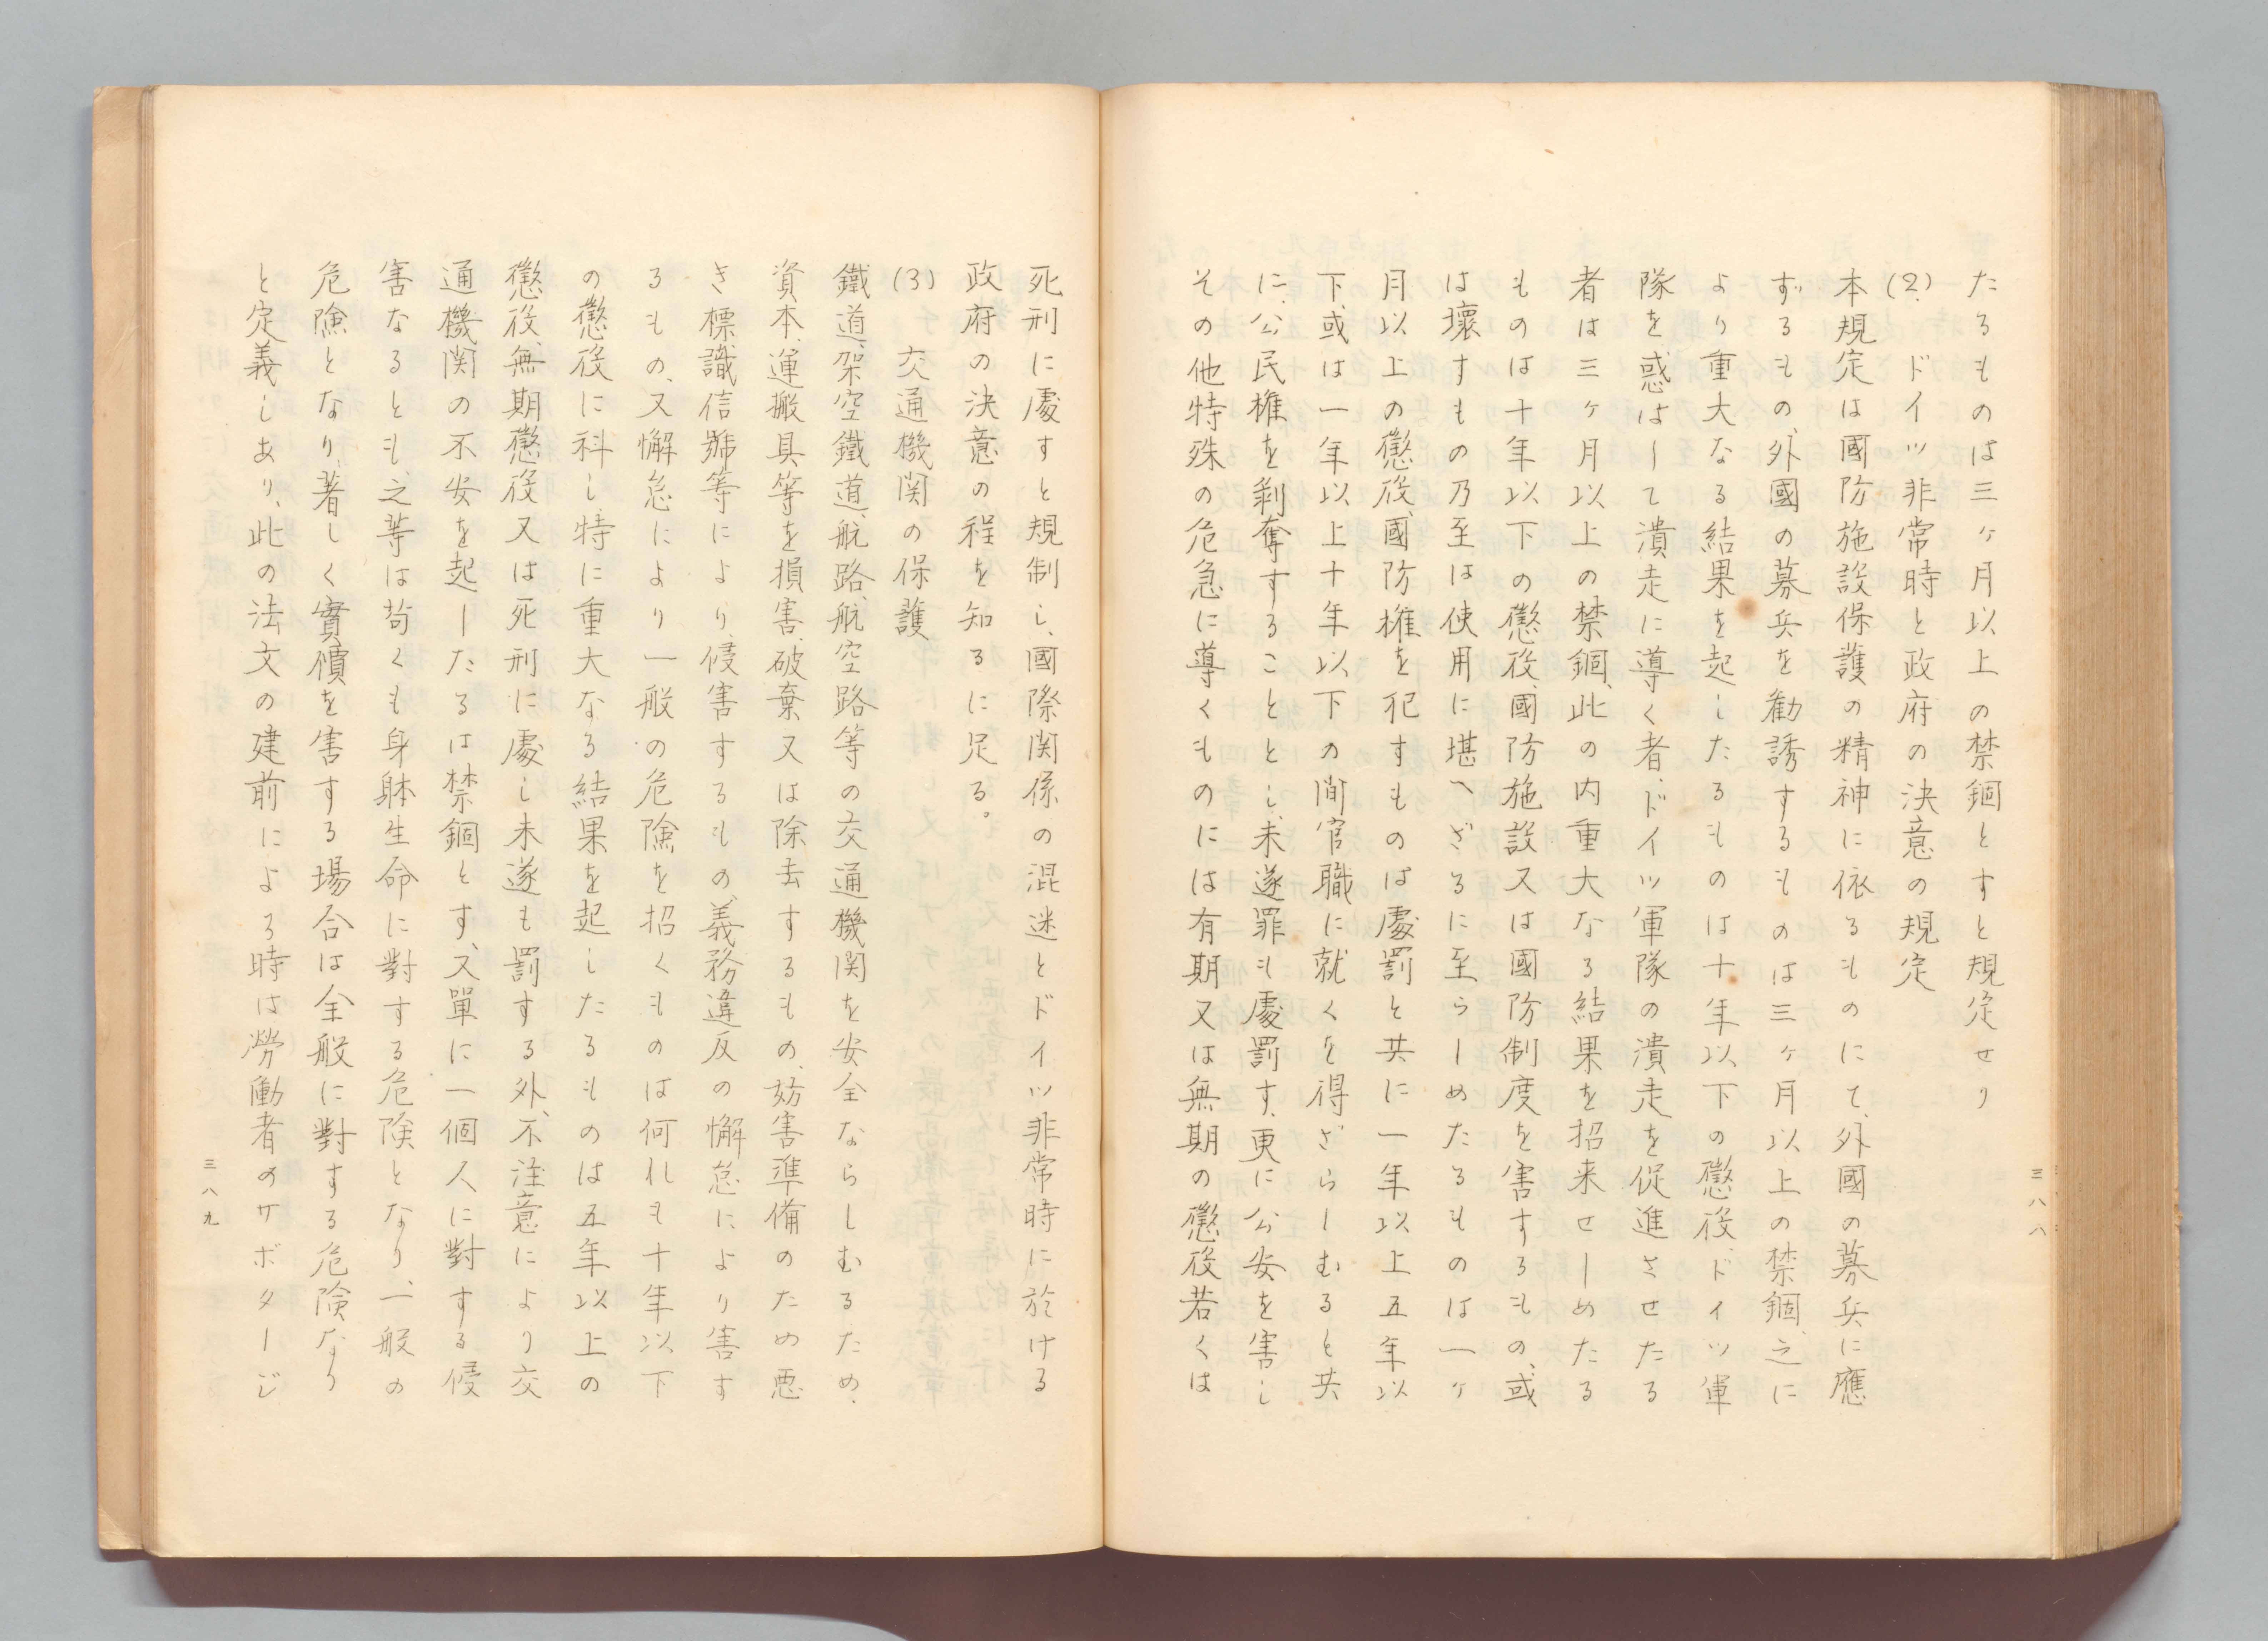 たるものは三ヶ月以上の禁錮とすと規定せり
(2)、ドイツ非常時と政府の決意の規定
本規定は國防施設保護の精神に依るものにて、外國の募兵に應
ずるもの、外國の募兵を勧誘するものは三ヶ月以上の禁錮、之に
より重大なる結果を起したるものは十年以下の懲役、ドイツ軍
隊を惑はして潰走に導く者、ドイツ軍隊の潰走を促進させたる
者は三ヶ月以上の禁錮、此の内重大なる結果を招来せしめたる
ものは十年以下の懲役、國防施設又は國防制度を害するもの、或
は壞すもの乃至は使用に堪へざるに至らしめたるものは一ヶ
月以上の懲役、國防権を犯すものは處罰と共に一年以上五年以
下、或は一年以上十年以下の間官職に就くを得ざらしむると共
に、公民権を剝奪することとし、未遂罪も處罰す、更に公安を害し
その他特殊の危急に導くものには有期又は無期の懲役若くは
三八八
死刑に處すと規制し、國際関係の混迷とドイツ非常時に於ける
政府の決意の程を知るに足る。
(3)　交通機関の保護
鐵道、架空鐵道、航路、航空路等の交通機関を安全ならしむるため、
資本、運搬具等を損害、破棄又は除去するもの、妨害準備のため悪
き標識信號等により、侵害するもの、義務違反の懈怠により害す
るもの、又懈怠により一般の危険を招くものは何れも十年以下
の懲役に科し、特に重大なる結果を起したるものは五年以上の
懲役、無期懲役又は死刑に處し未遂も罰する外、不注意により交
通機関の不安を起したるは禁錮とす、又單に一個人に對する侵
害なるとも、之等は苟くも身躰生命に對する危険となり、一般の
危険となり、著しく實價を害する場合は全般に對する危険なり
と定義しあり、此の法文の建前による時は勞働者のサボタージ
三八九